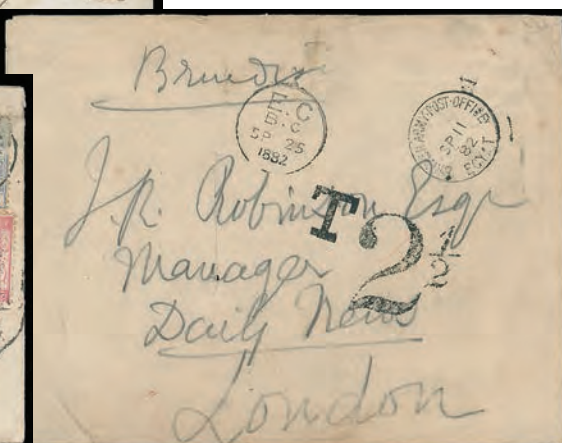 Brindisi
E.C
B.C
SP 25
1882
BRITISH ARMY POST OFFICE
SP 11
82
EGYPT
T 2½
J.R. Robinson Esqr
Manager
Daily News
London